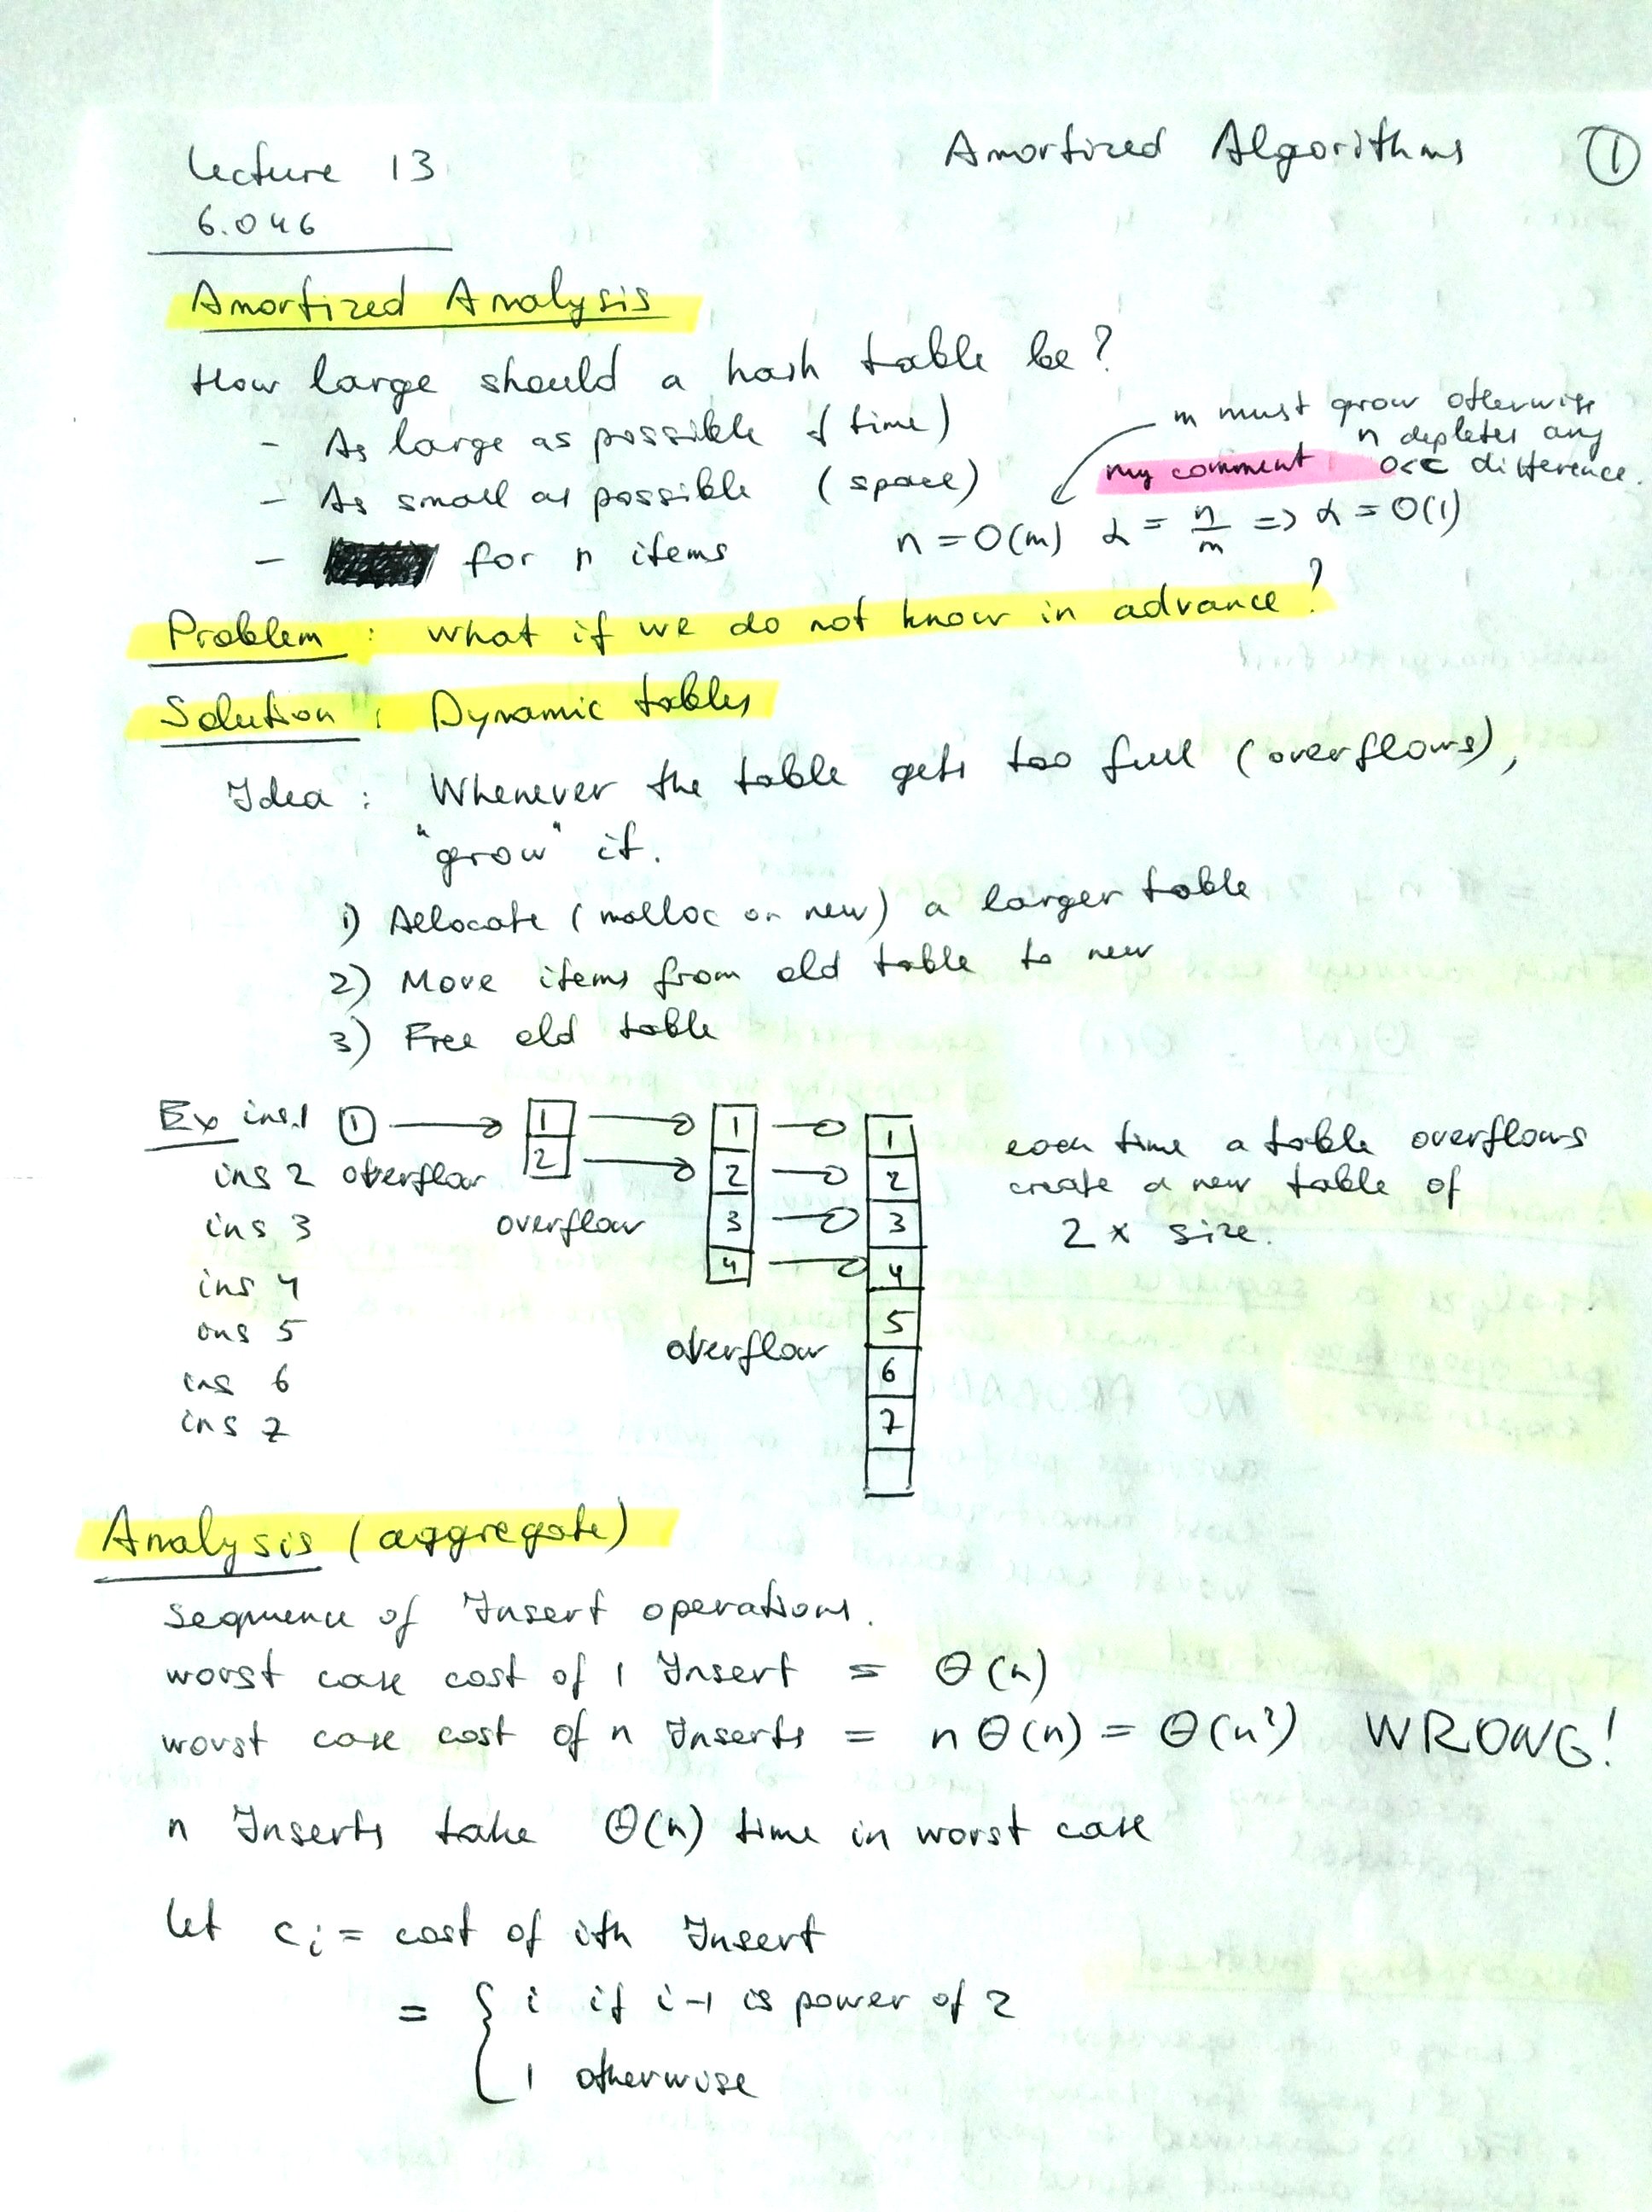 Lecture 13
Amortized Algorithms ①
6.046
Amortized Analysis
How large should a hash table be?
- As large as possible (time)
- As small as possible (space)
- for n items
m must grow otherwise
n depletes any
my comment difference.
n = O(m) α = n/m => α = O(1)
Problem : what if we do not know in advance?
Solution : Dynamic tables
Idea : Whenever the table gets too full (overflows),
"grow" it.
1) Allocate (malloc or new) a larger table
2) Move items from old table to new
3) Free old table
Ex ins.1 1 1 1 1
ins 2 overflow 2 2 2
ins 3 overflow 3 3
ins 4 4 4
ons 5 overflow 5
ins 6 6
ins 7 7
each time a table overflows
create a new table of
2 x size.
Analysis (aggregate)
Sequence of Insert operations.
worst case cost of 1 Insert = Θ(n)
worst case cost of n Inserts = n Θ(n) = Θ(n²) WRONG!
n Inserts take Θ(n) time in worst case
Let cᵢ = cost of ith Insert
= { i if i-1 is power of 2
1 otherwise